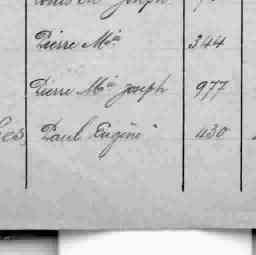 Joseph
Pierre Mie 344
Pierre Mie Joseph 977
Paul Eugène 430